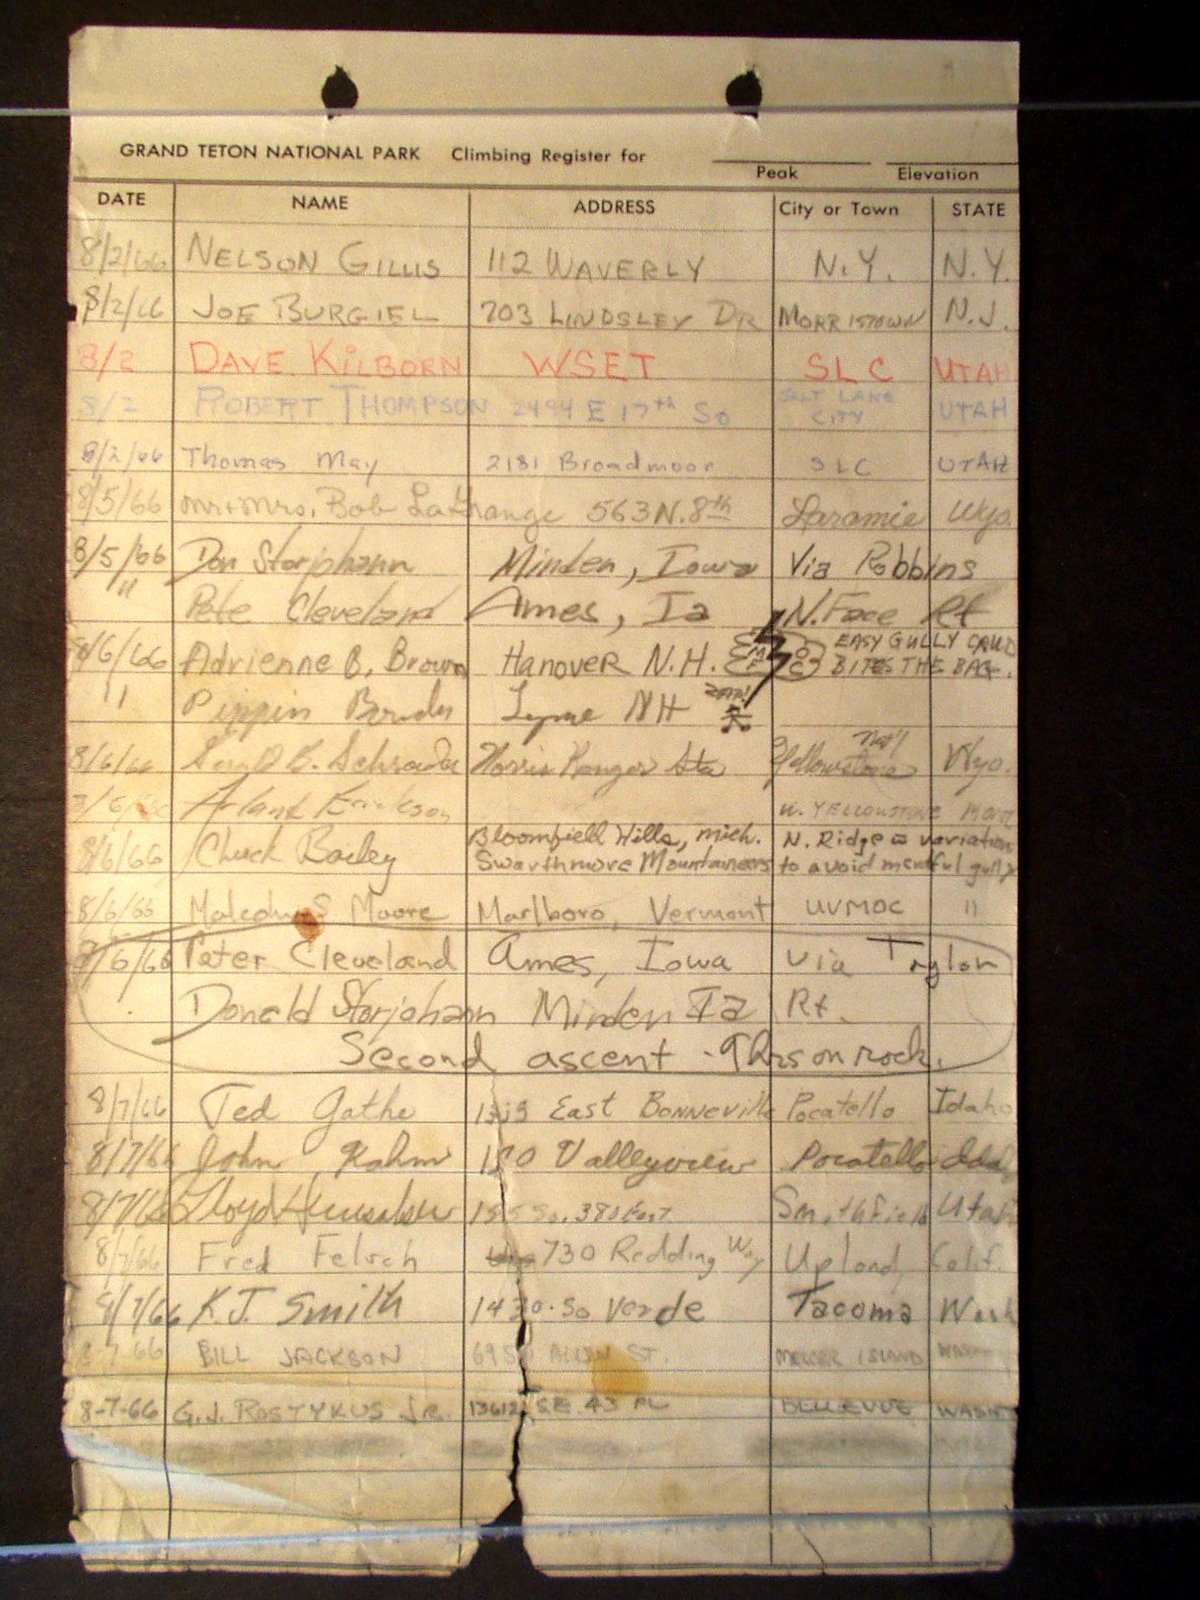 GRAND TETON NATIONAL PARK Climbing Register for
Peak Elevation
DATE NAME ADDRESS City or Town STATE
8/2/66 NELSON GILLIS 112 WAVERLY N.Y. N.Y.
8/2/66 JOE BURGIEL 703 LINDSLEY DR MORRISTOWN N.J.
8/2 DAVE KILBORN WSET SLC UTAH
8/2 ROBERT THOMPSON 2494 E 17th So SALT LAKE CITY UTAH
8/2/66 Thomas May 2181 Broadmoor SLC UTAH
8/5/66 Mr+Mrs. Bob LaGrange 563 N. 8th Laramie Wyo
8/5/66 Don Storjohann Minden, Iowa Via Robbins
" Pete Cleveland Ames, Ia N. Face Rt
8/6/66 Adrienne B. Brown Hanover N.H. EASY GULLY
BITES THE BAG.
" Pippin Lyme NH ZAP!
8/6/66 B. Schrader Norris Ranger Sta Yellowstone Nat'l Wyo.
W. YELLOWSTONE
8/6/66 Chuck Bailey Bloomfield Hills, Mich. N. Ridge variation
Swarthmore Mountaineers to avoid
8/6/66 Moore Marlboro, Vermont UVMOC "
8/6/66 Peter Cleveland Ames, Iowa via Taylor
Donald Storjohann Minden Ia Rt.
Second ascent - 9 hrs on rock.
8/7/66 Ted Gathe East Bonneville Pocatello Idaho
8/7/66 John Kahm 150 Valleyview Pocatello Ida
8/7/66 Lloyd Hunsaker So. 380 East Smithfield Utah
8/7/66 Fred Felsch 730 Redding Way Upland, Calif.
8/7/66 K.J. Smith 1430 So Verde Tacoma Wash
8-7-66 BILL JACKSON ST. MERCER ISLAND WASH
8-7-66 G.J. ROSTYKUS JR. 13612 SE 43 PL BELLEVUE WASH